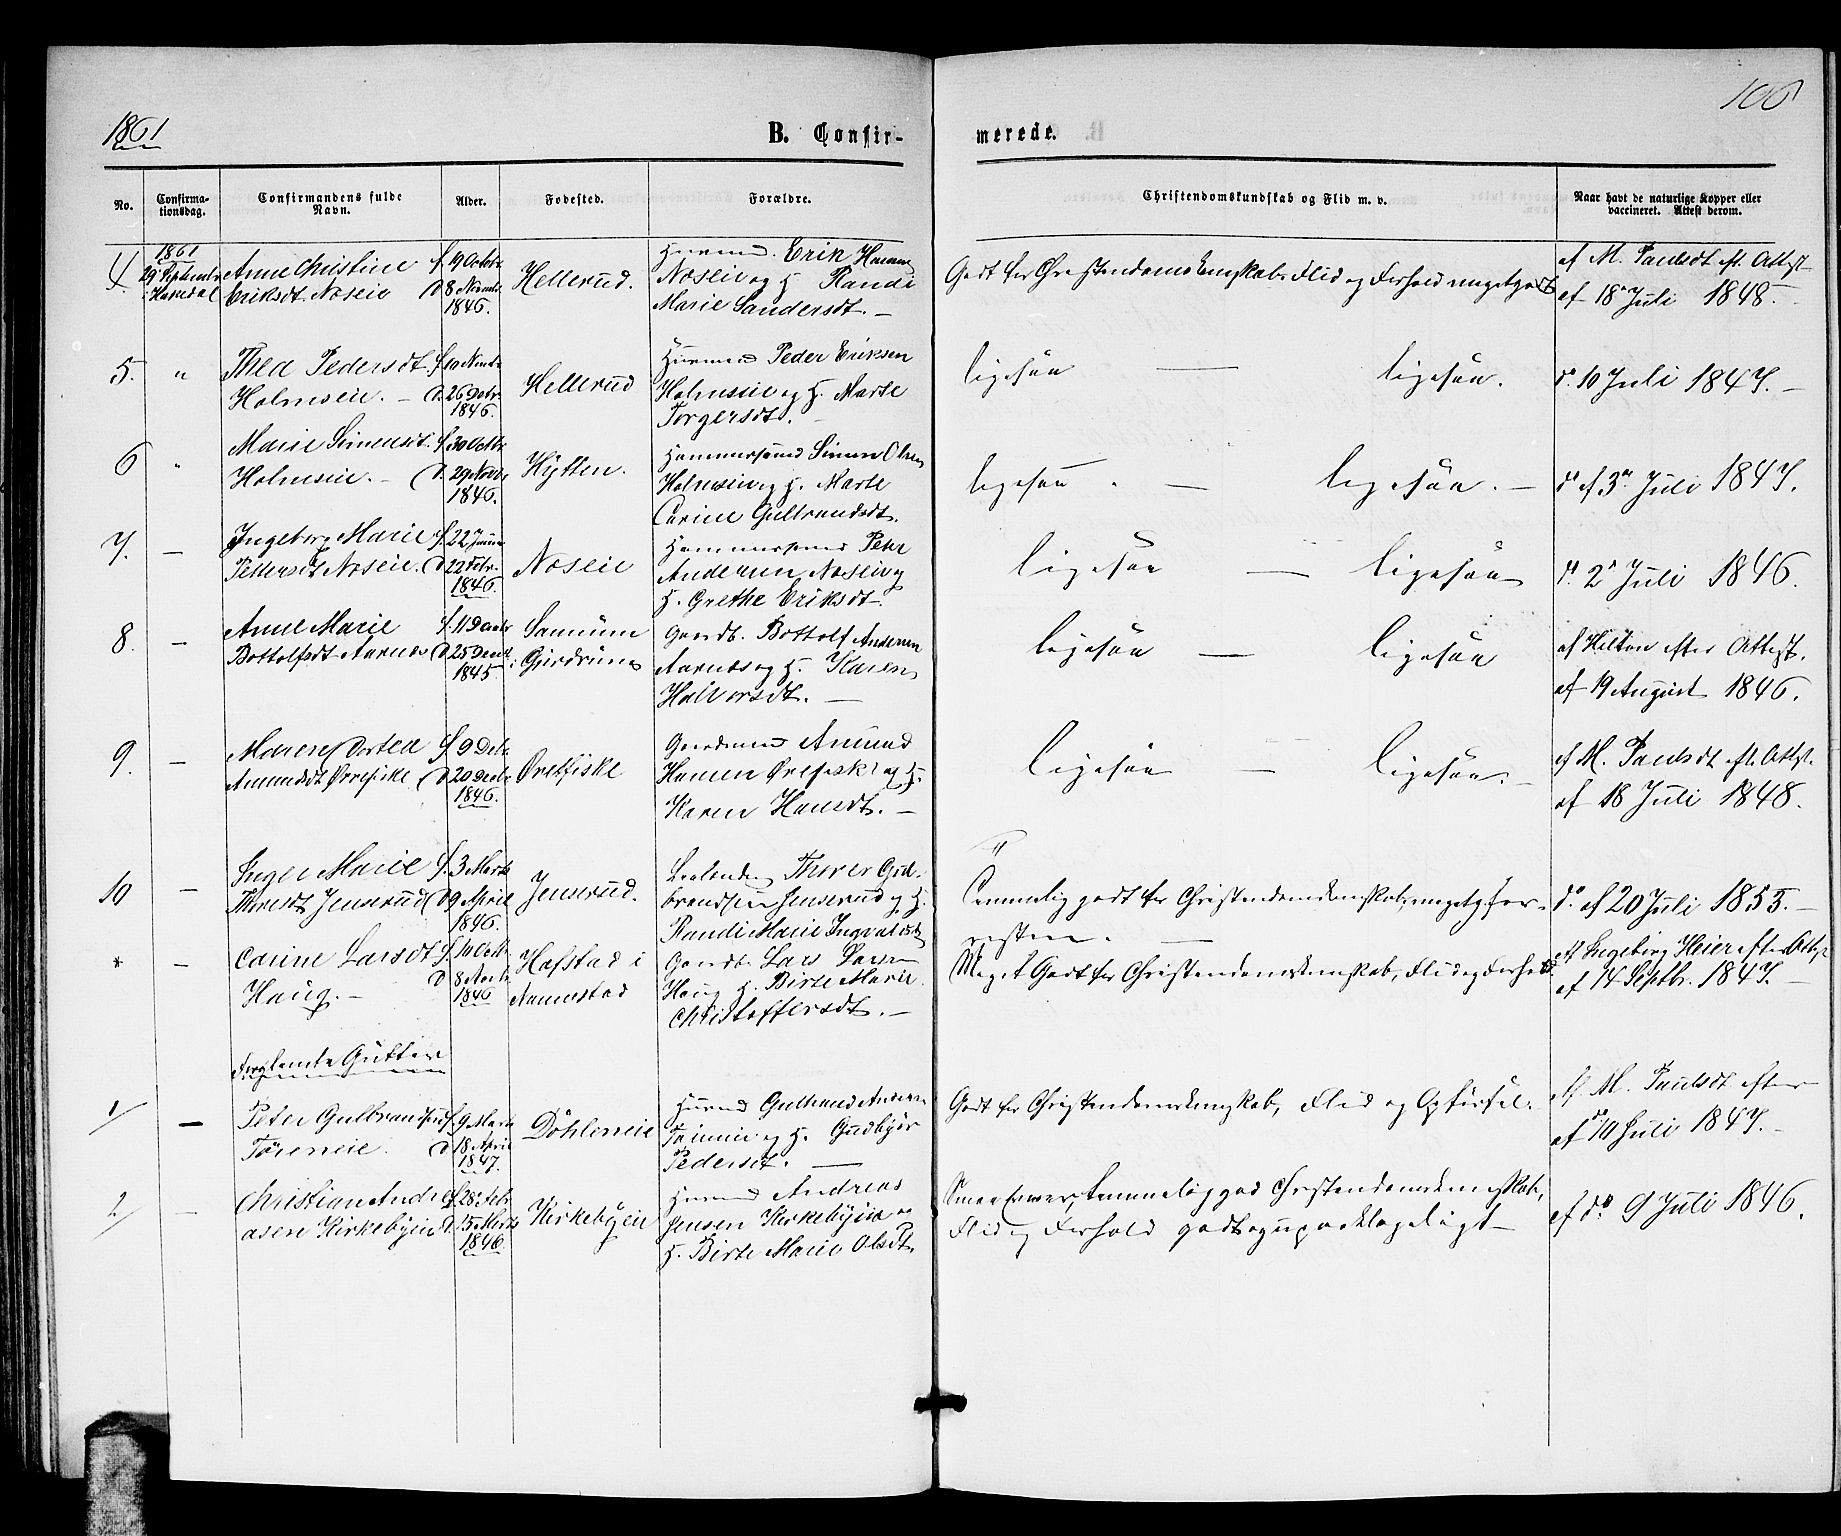 1861
106
B. Confir-
merede.
No.
Confirma-
tionsdag.
Confirmandens fulde
Navn.
Alder.
Fødested.
Forældre.
Christendomskundskab og Flid m. v.
Naar havt de naturlige Kopper eller
vaccineret. Attest derom.
4.
1861
29 Septembr
i Hakedal
Anne Christine
Eriksdt. Noseie
f. 19 Octobr
d. 8 Novmbr
1846.
Hellerud.
Huusmd. Erik Hansen
Noseie og H. Randi
Marie Sandersdt. —
Godt for Christendomskundskab. Flid og Forhold meget godt
af M. Paulsdt eft. Attest
af 18 Juli 1848. —
5. "
Thea Pedersdt
Holmseie. —
f. 10
d. 26 Octbr.
1846.
Hellerud
Huusmd Peder Eriksen
Holmseie og H. Marte
Torgersdt. —
ligesaa — ligesaa.
do. 10 Juli 1847. —
6 "
Marie Simensdt.
Holmseie. —
f. 30 Octbr
d. 29 Novbr
1846.
Hytten.
Hammersmd Simen Olsen
Holmseie og H. Marte
Carine Gulbrandsdt.
ligesaa. — ligesaa. —
do af 3 Juli 1847.
7. —
Ingeborg Marie
Pettersdt Noseie.
f. 22 Januar
d. 22 Febr.
1846.
Noseie
Hammersmed Peter
Andersen Noseie og
H. Grethe Eriksdt.
ligesaa — ligesaa
do. 2 Juli 1846.
8. —
Anne Marie
Bottolfsdt Aarnes
f. 11
d. 25 Decbr
1845
i Gjerdrum
Gaardb. Bottolf Andersen
Aarnes og H. Karen
Halvorsdt. —
ligesaa — ligesaa
af Hilton efter Attest.
af 19 August 1846.
9. —
Maren Dortea
Amundsdt Ørrefiske
f. 9
d. 20 Decbr
1846.
Ørefiske
Gaardmd Amund
Hansen Ørefiske og H.
Karen Hansdt. —
ligesaa — ligesaa. —
af M. Paulsdt eft. Attst.
af 18 Juli 1848.
10 —
Inger Marie
Thoresdt Jenserud
f. 3 Marts
d. 9 April
1846.
Jenserud.
Thorer Gud-
brandsen Jenserud og H.
Randi Marie Ingvaldsdt
Temmelig godt for Christendomskundskab,
do. af 20 Juli 1853. —
* —
Carine Larsdt
Haug. —
f. 10 Octbr
d. 8
1846
Hofstad i
Nannestad
Gaardb. Lars Larsen
Haug H. Birte Marie
Christoffersdt. —
Meget Godt for Christendomskundskab, Flid og Forhold.
af Ingeborg Heier efter Attest
af 14 Septbr. 1847. —
Forglemte Gutter
1/ —
Peter Gulbrandsen
Tøieneie.
f. 9 Marts
d. 18 April
1847.
Döhleneie
Huusmd Gulbrand Andersen
Tøieneie og H. Gudbjør
Pedersdt. —
Godt for Christendomskundskab, Flid og Opførsel.
af M. Paulsdt efter
af do 10 Juli 1847. —
2/ —
Christian Andre-
asen Kirkebyeie
f. 28 Febr
d. 15 Marts
1846.
Kirkebyeie
Huusmd Andreas
Jensen Kirkebyeie og
H. Birte Marie Olsdt
temmelig god Christendomskundskab,
Flid og Forhold godt og upaaklageligt —
af do. 9 Juli 1846.